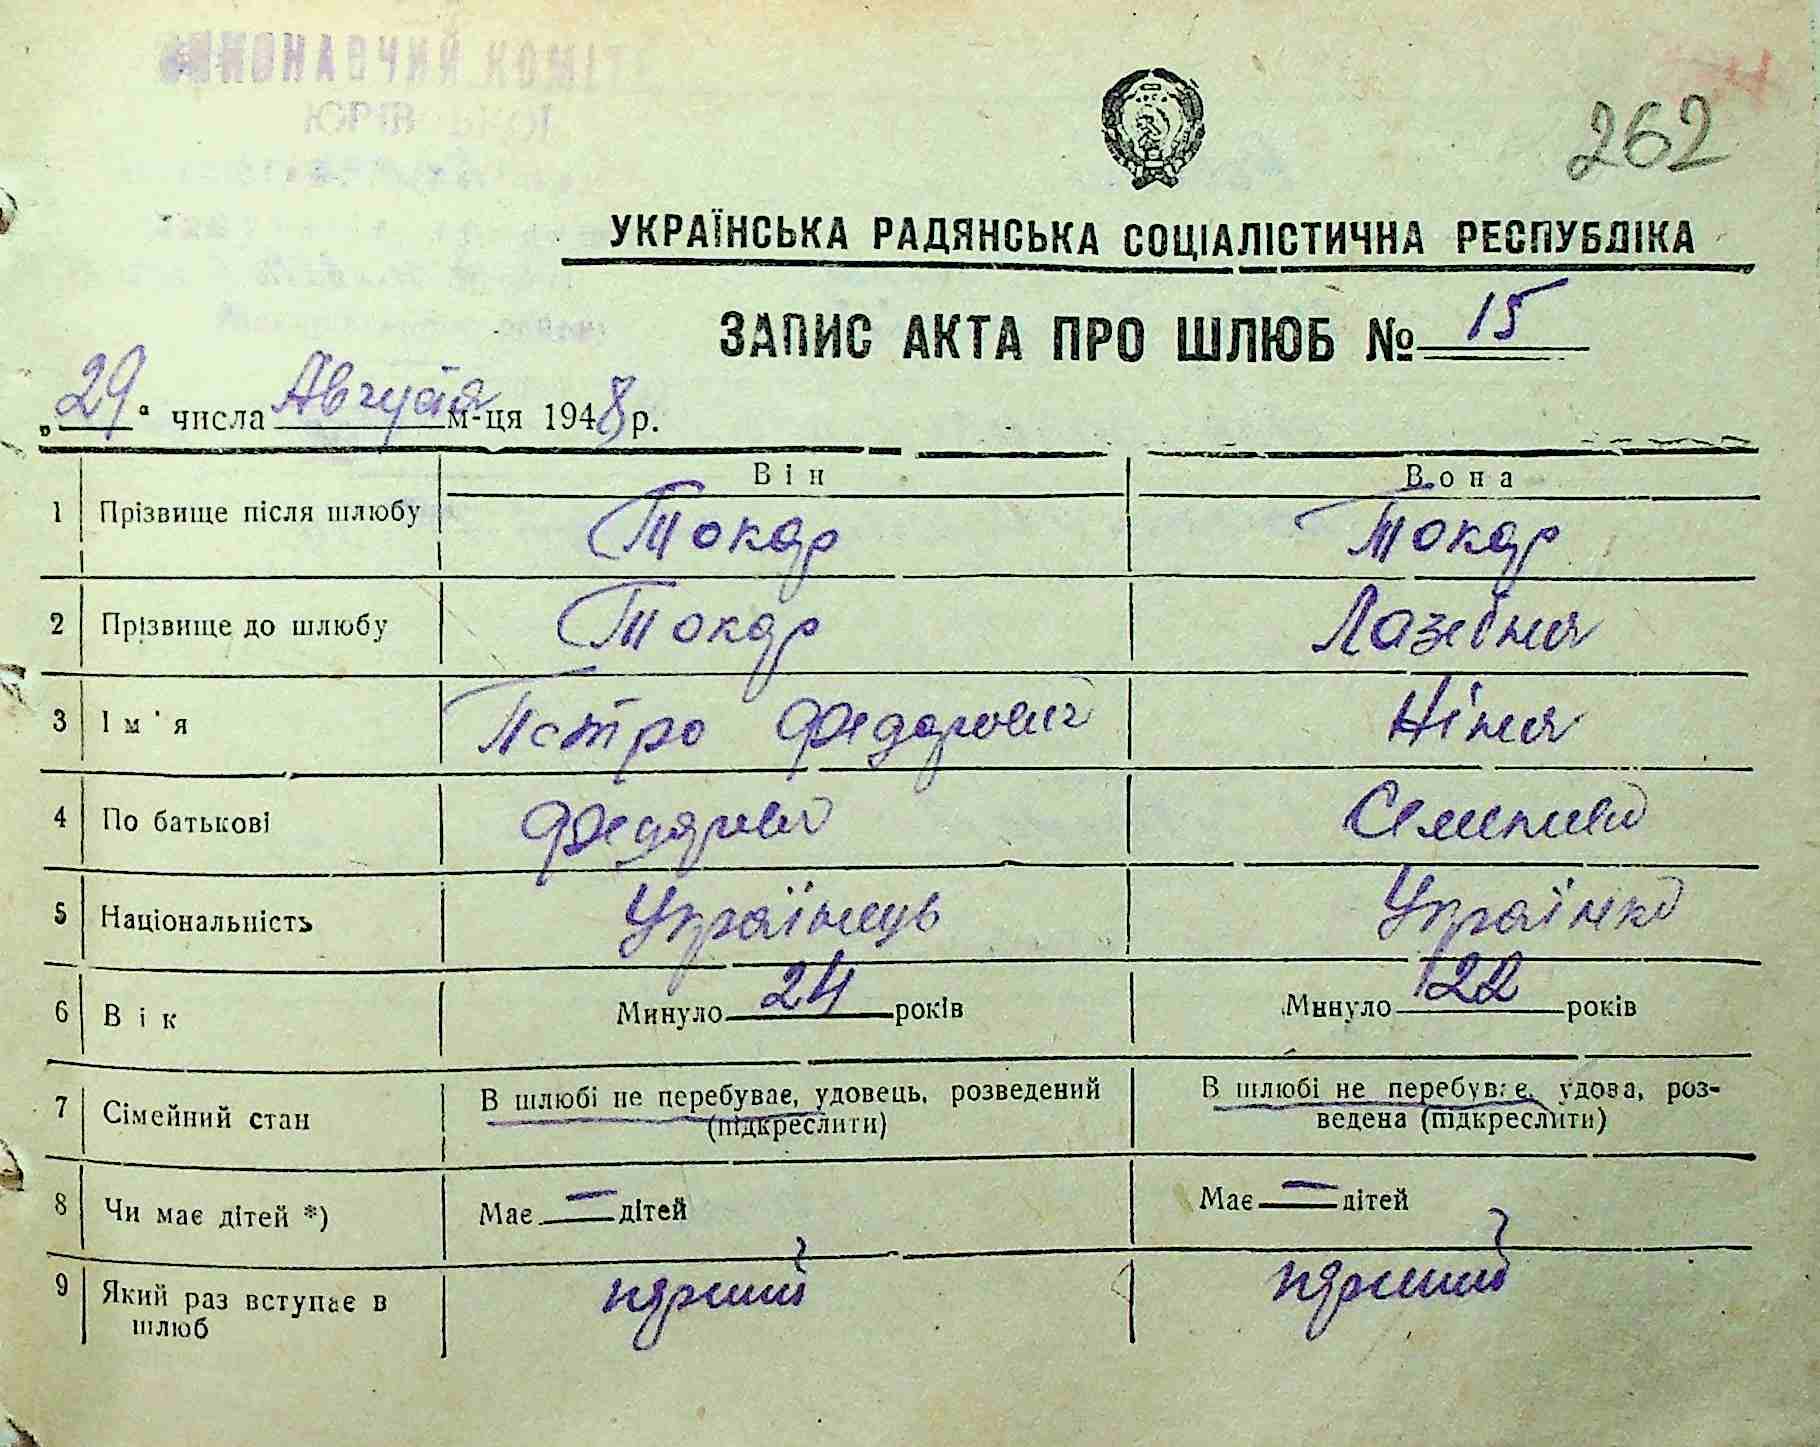 ВИКОНАВЧИЙ КОМІТ
ЮРІВ
262
УКРАЇНСЬКА РАДЯНСЬКА СОЦІАЛІСТИЧНА РЕСПУБЛІКА
ЗАПИС АКТА ПРО ШЛЮБ № 15
„29“ числа Августа м-ця 1948 р.
Він Вона
1 Прізвище після шлюбу Токар Токар
2 Прізвище до шлюбу Токар Лазебна
3 Ім'я Петро Федорович Ніна
4 По батькові
5 Національність Українець Українка
6 Вік Минуло 24 років Минуло 22 років
7 Сімейний стан В шлюбі не перебуває, удовець, розведений (підкреслити) В шлюбі не перебуває, удова, роз-
ведена (підкреслити)
8 Чи має дітей *) Має — дітей Має — дітей
9 Який раз вступає в шлюб перший перший